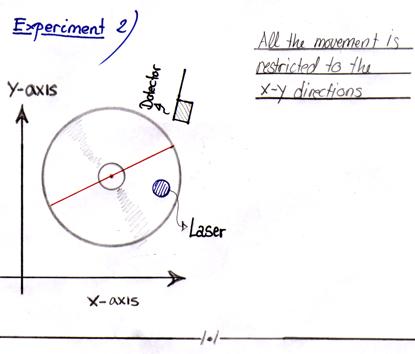 Experiment 2)
All the movement is
restricted to the
x-y directions
Detector
Y-axis
Laser
X-axis